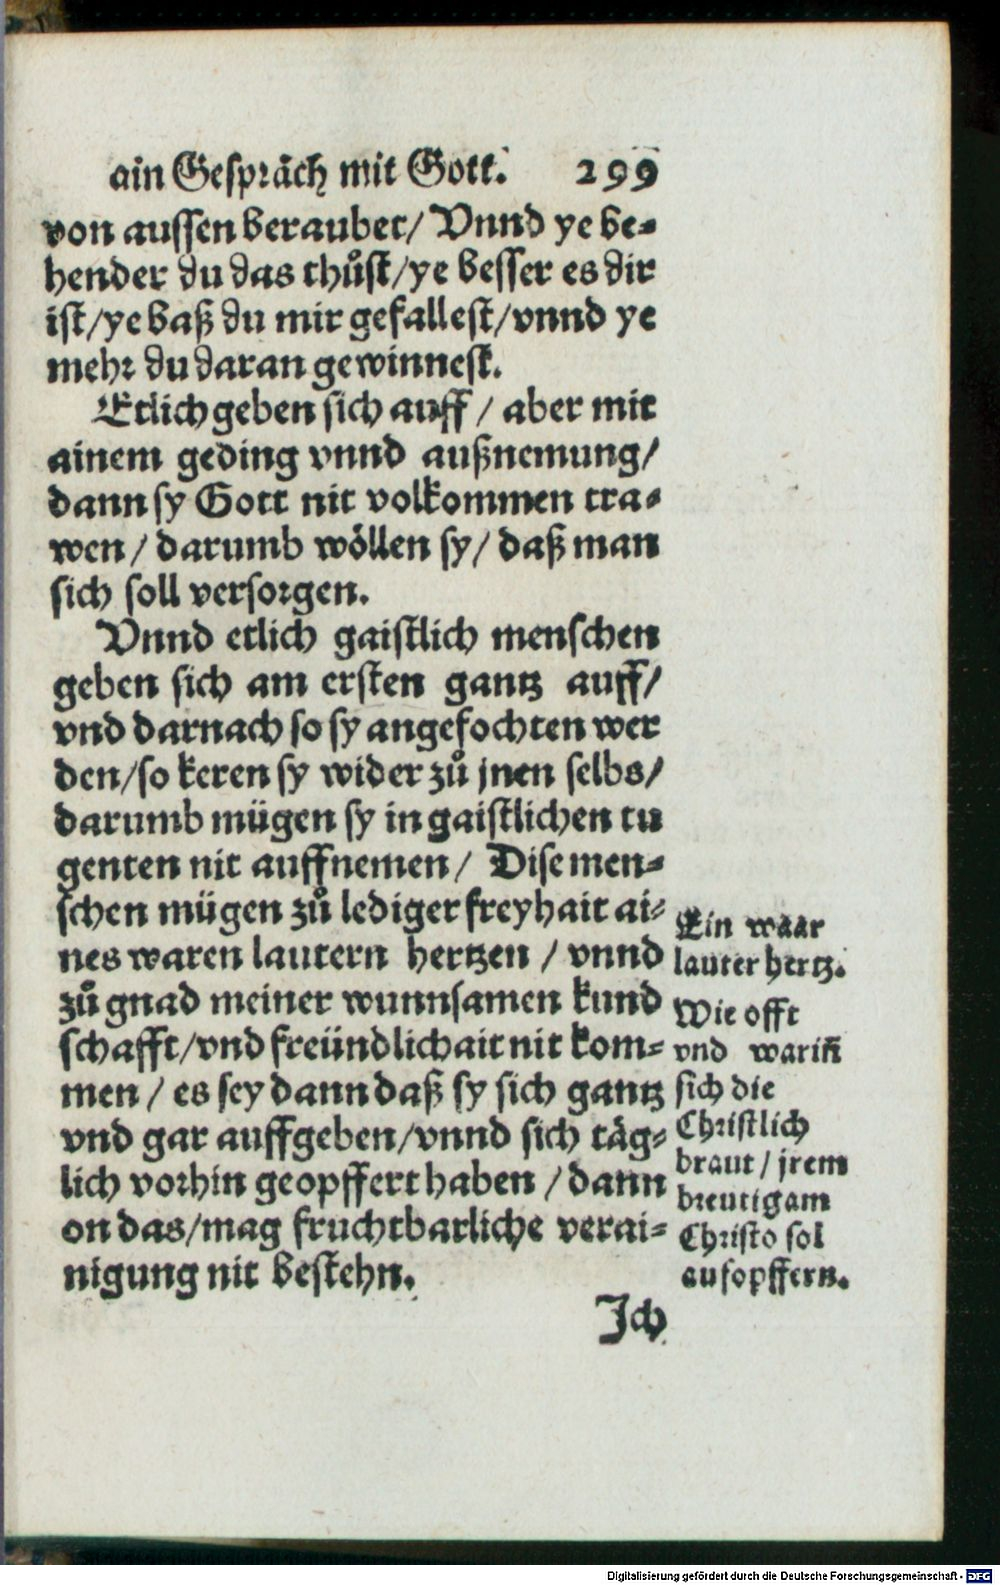 ain Gespräch mit Gott. 299
von aussen beraubet/ Vnnd ye be-
hender du das thůst/ye besser es dir
ist/ye baß du mir gefallest/vnnd ye
mehr du daran gewinnest.
Etlich geben sich auff / aber mit
ainem geding vnnd außnemung/
dann sy Gott nit volkommen tra-
wen / darumb wöllen sy/ daß man
sich soll versorgen.
Vnnd etlich gaistlich menschen
geben sich am ersten gantz auff/
vnd darnach so sy angefochten wer
den/so keren sy wider zů jnen selbs/
darumb mügen sy in gaistlichen tu
genten nit auffnemen / Dise men-
schen mügen zů lediger freyhait ai-
nes waren lautern hertzen / vnnd
zů gnad meiner wunnsamen kund
schafft/vnd freündlichait nit kom-
men / es sey dann daß sy sich gantz
vnd gar auffgeben/vnnd sich täg-
lich vorhin geopffert haben / dann
on das/mag fruchtbarliche verai-
nigung nit bestehn.
Ein waar
lauter hertz.
Wie offt
vnd warin̄
sich die
Christlich
braut / jrem
breutigam
Christo sol
aufopffern.
Ich
Digitalisierung gefördert durch die Deutsche Forschungsgemeinschaft - DFG